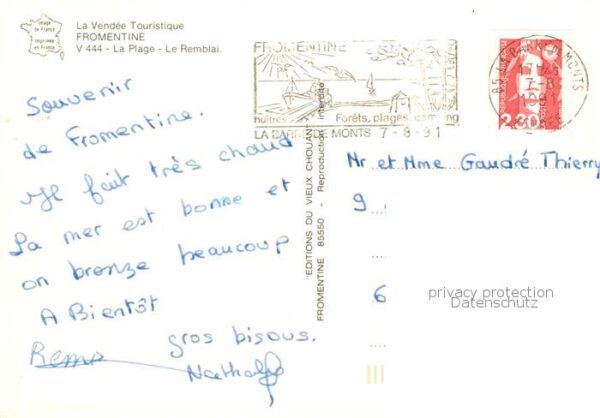 image
de France
imprimée
en France
La Vendée Touristique
FROMENTINE
V 444 - La Plage - Le Remblai.
Souvenir
de Fromentine.
Il fait très chaud
La mer est bonne et
on bronze beaucoup
A Bientôt
gros bisous.
Nathalie
"EDITIONS DU VIEUX CHOUAN"
FROMENTINE 85550 - Reproduction interdite
FROMENTINE
huîtres Forêts, plages, camping
LA BARRE DE MONTS 7-8-91
85 LA BARRE DE MONTS
17H45
7-8
1991
2,30
Mr et Mme Gaudré Thierry
9
6
privacy protection
Datenschutz